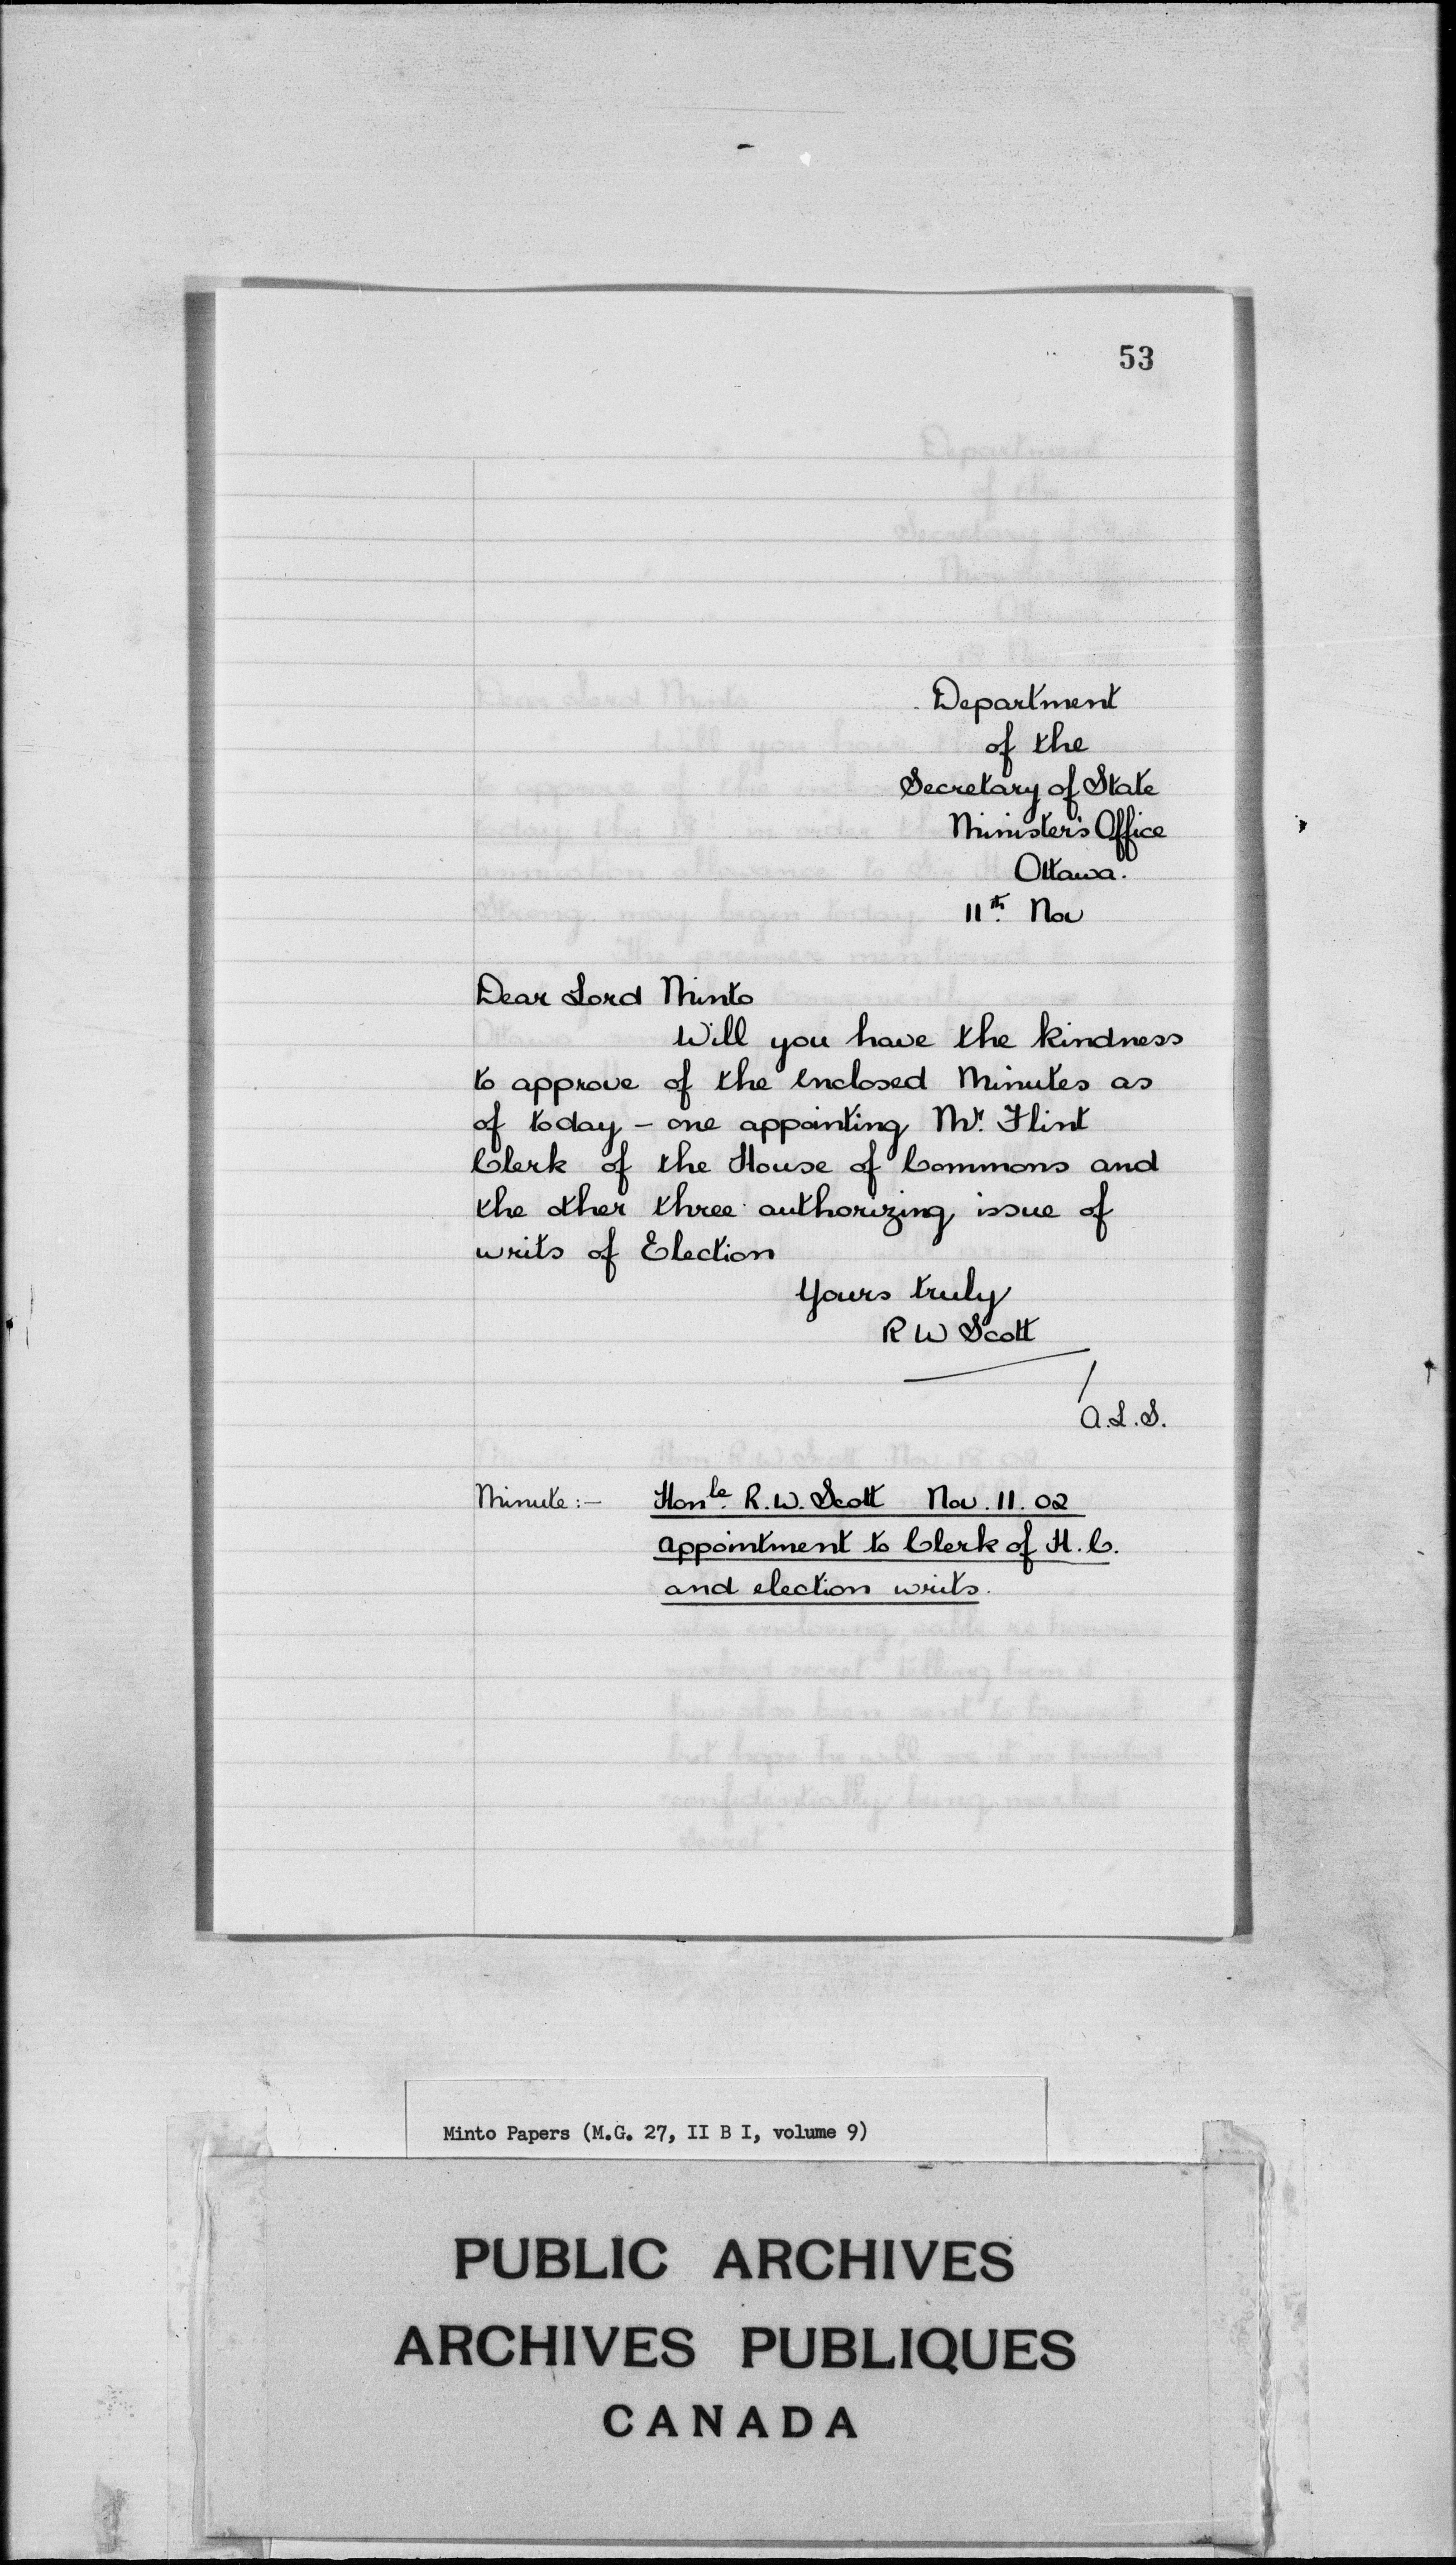 53
Department
of the
Secretary of State
Minister's Office
Ottawa.
11th. Nov
Dear Lord Minto
Will you have the kindness
to approve of the enclosed Minutes as
of today - one appointing Mr. Flint
Clerk of the House of Commons and
the other three authorizing issue of
writs of Election
Yours truly
R W Scott
A.L.S.
Minute:- Honle. R.W. Scott Nov. 11. 02
appointment to Clerk of H.C.
and election writs.
Minto Papers (M.G. 27, II B I, volume 9)
PUBLIC ARCHIVES
ARCHIVES PUBLIQUES
CANADA